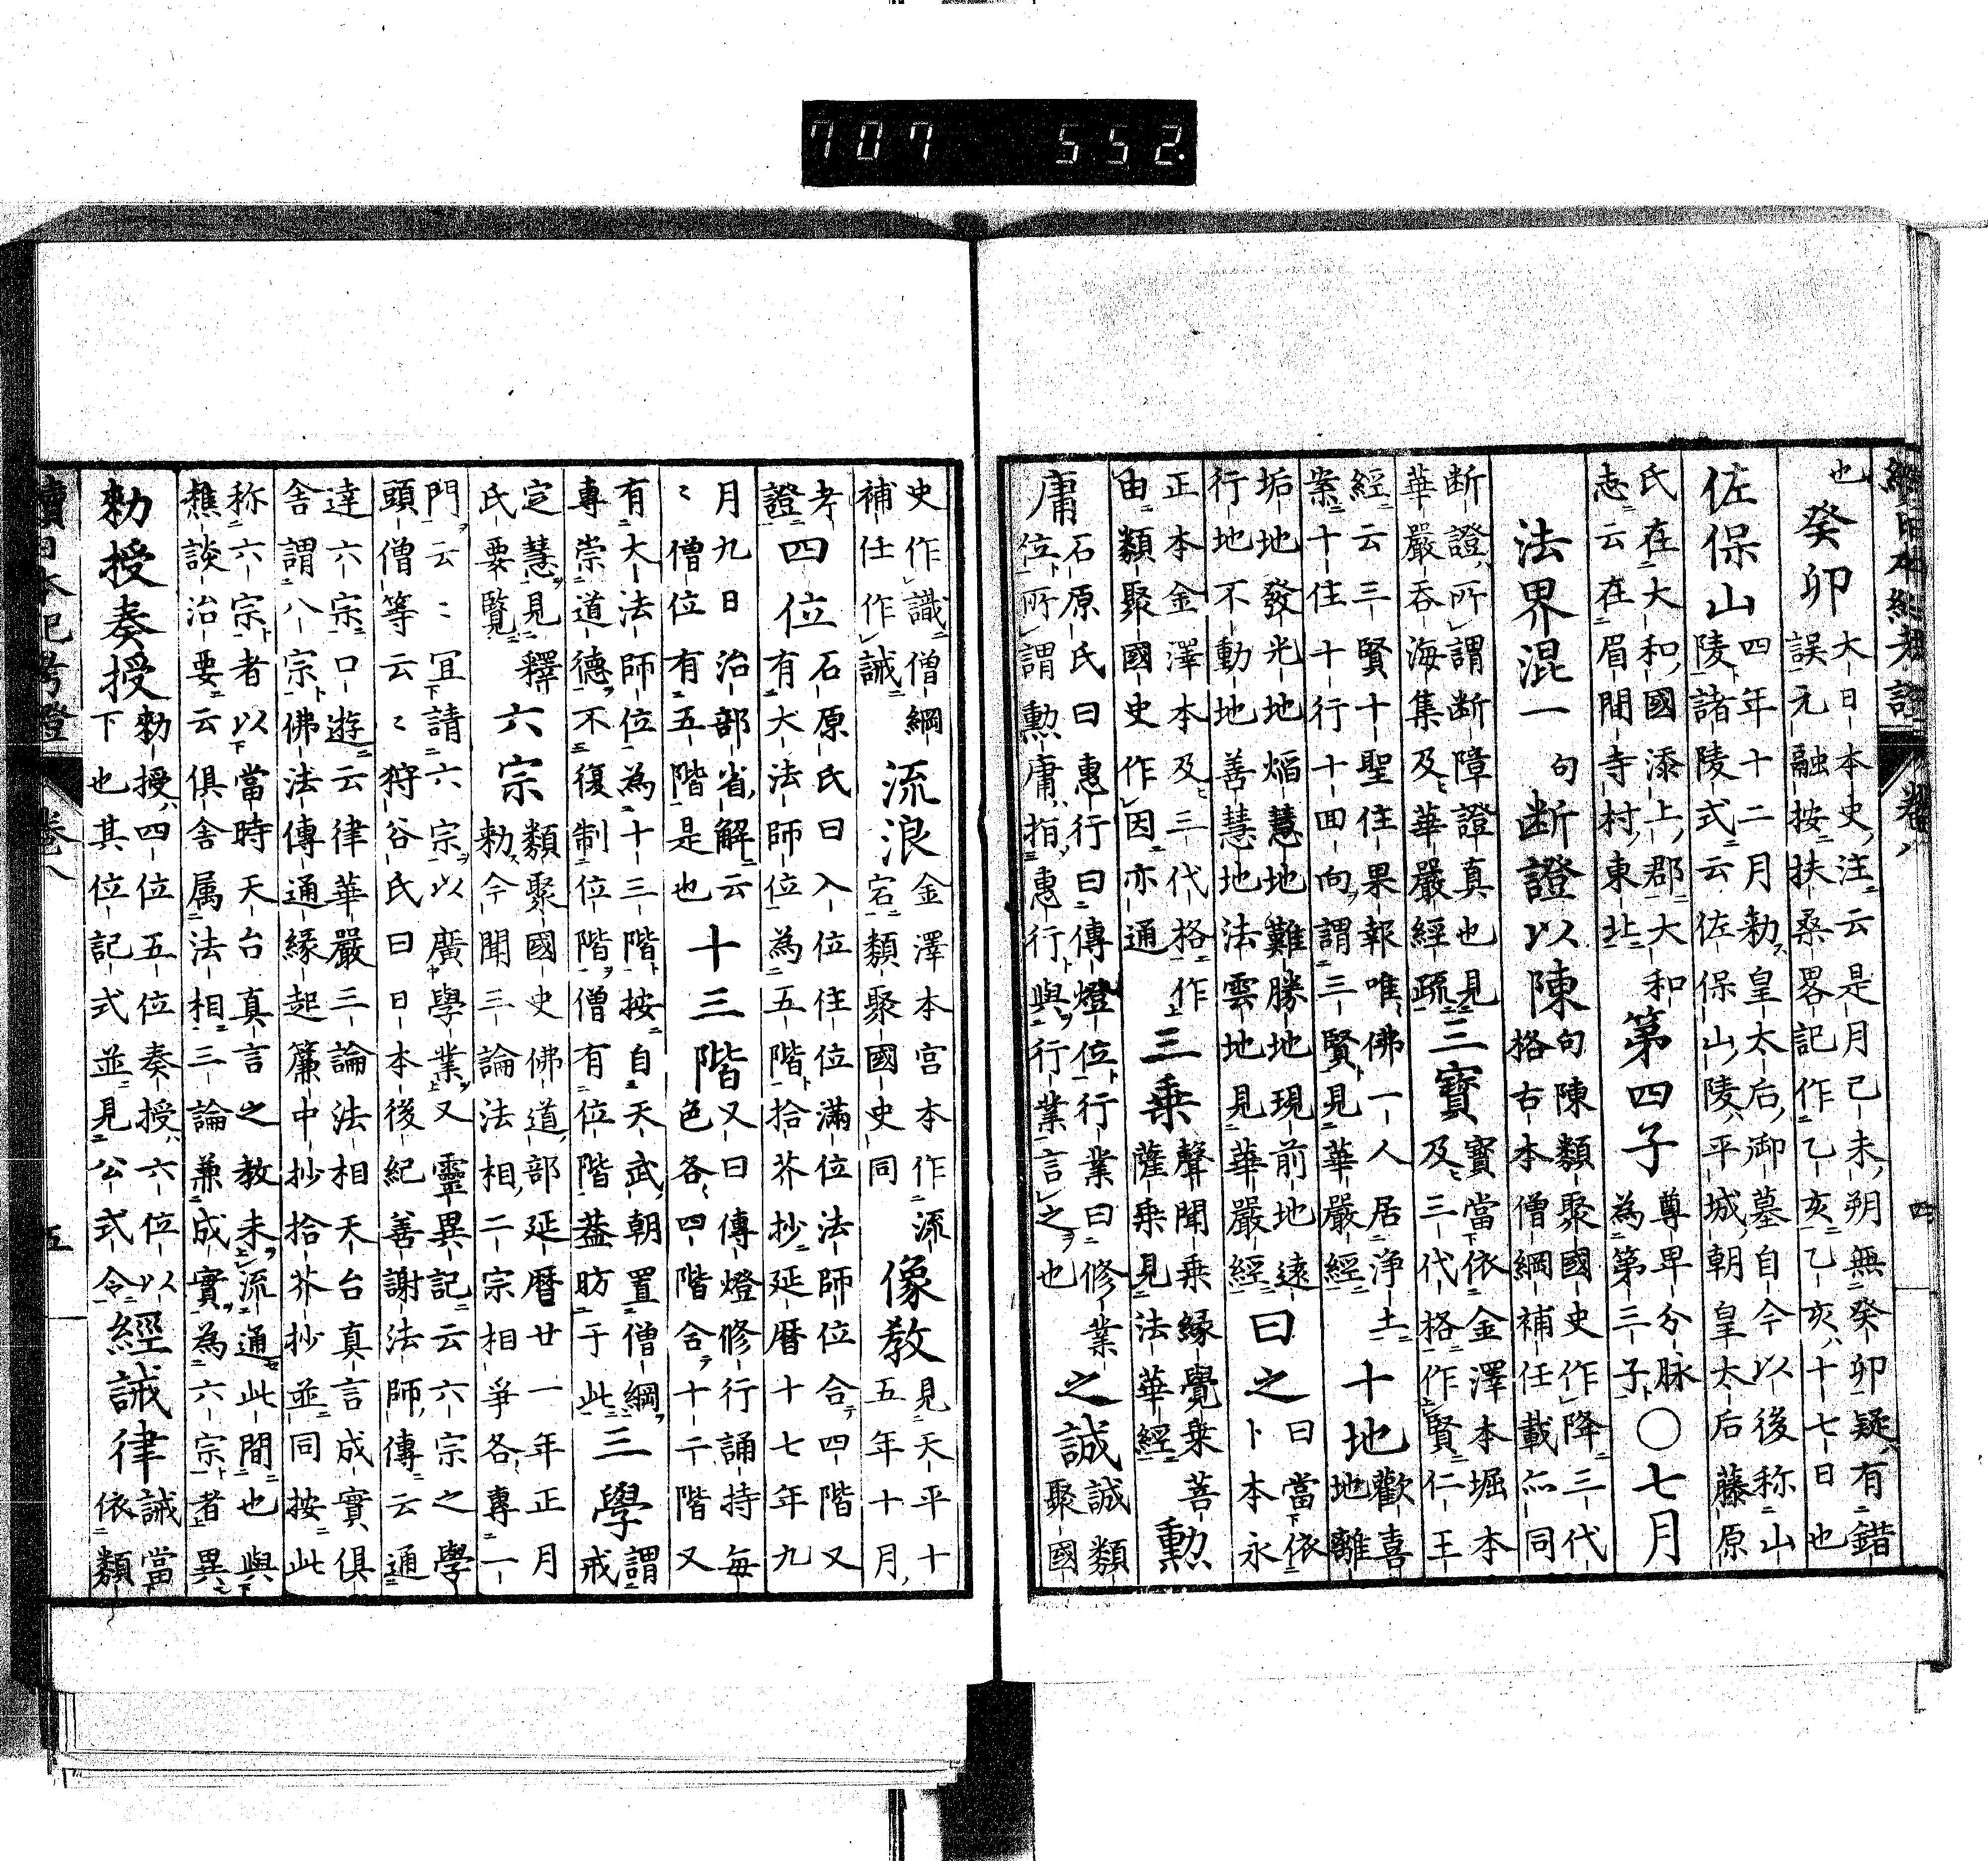 707 552.
續日本紀考證 卷八 四
也癸卯大日本史注云是月己未朔無癸卯疑有錯
誤元融按扶桑畧記作乙亥乙亥十七日也
佐保山四年十二月勅皇太后御墓自今以後称山
陵諸陵式云佐保山陵平城朝皇太后藤原
氏在大和國添上郡大和
志云在眉間寺村東北第四子尊卑分脉
為第三子〇七月
法界混一句断證以陳句陳類聚國史作降三代
格古本僧綱補任載亦同
断證所謂断障證真也見
華嚴吞海集及華嚴經疏三寳寳當依金澤本堀本
及三代格作賢仁王
經云三賢十聖住果報唯佛一人居浄土
業十住十行十回向謂三賢見華嚴經十地歡喜
地離
垢地發光地焔慧地難勝地現前地遠
行地不動地善慧地法雲地見華嚴經曰之曰當依
卜本永
正本金澤本及三代格作
由類聚國史作因亦通三乗聲聞乗緣覺乗菩
薩乗見法華經勲
庸石原氏曰惠行曰傳燈位行業曰修業
位所謂勲庸指惠行與行業言之也之誠誠類
聚國
史作識僧綱
補任作誡流浪金澤本宮本作流
宕類聚國史同像教見天平十
五年十月
考
證四位石原氏曰入位住位滿位法師位合四階又
有大法師位為五階拾芥抄延暦十七年九
月九日治部省解云
〻僧位有五階是也十三階又曰傳燈修行誦持每
色各四階合十二階又
有大法師位為十三階按自天武朝置僧綱
專崇道德不復制位階僧有位階葢昉于此三學謂
戒
定慧見釋
氏要覽六宗類聚國史佛道部延暦廿一年正月
勅今聞三論法相二宗相爭各專一
門云〻冝請六宗以廣學業又靈異記云六宗之學
頭僧等云〻狩谷氏曰日本後紀善謝法師傳云通
達六宗口遊云律華嚴三論法相天台真言成實俱
舎謂八宗佛法傳通緣起簾中抄拾芥抄並同按此
称六宗者以當時天台真言之教未流通此間也與
樵談治要云俱舎属法相三論兼成實為六宗者異
勅授奏授勅授四位五位奏授六位以
下也其位記式並見公式令經誡律誡當
依類
續日本紀考證 卷八 五